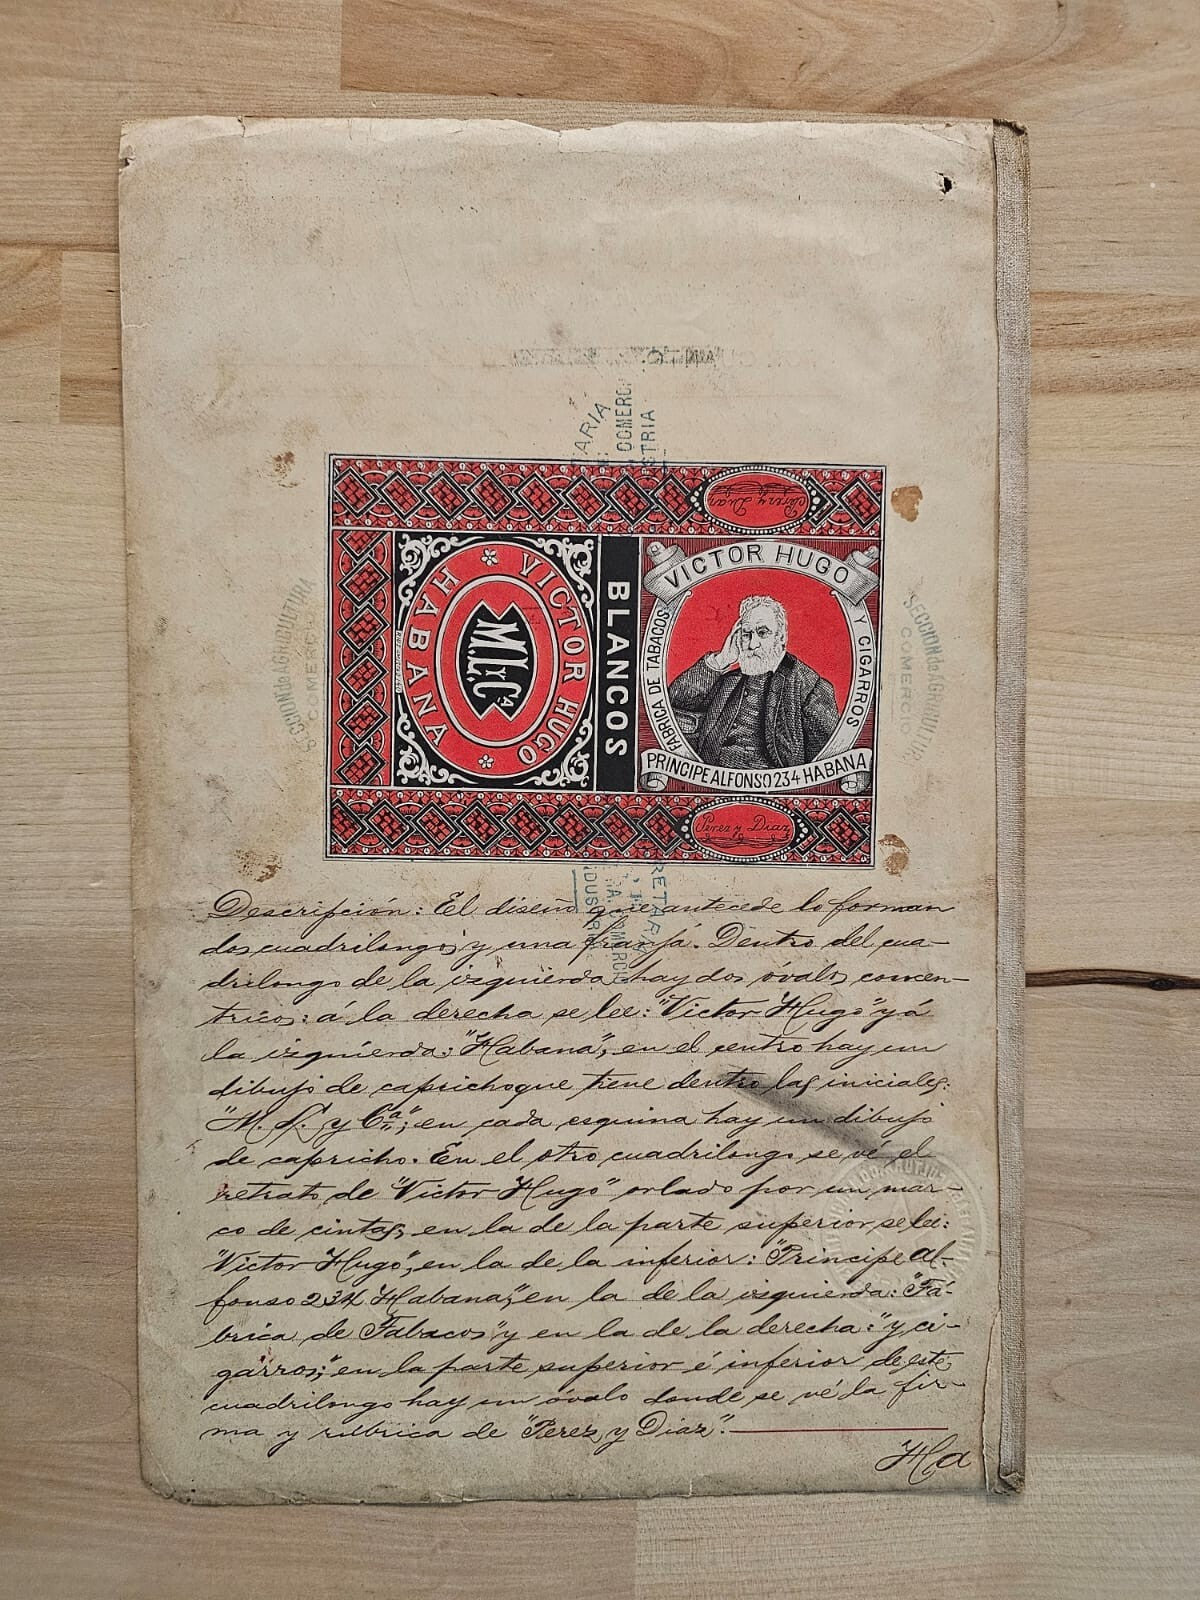 SECRETARIA
COMERC
STRIA
Perez y Diaz
VICTOR HUGO
HABANA
M.L.yCª
BLANCOS
VICTOR HUGO
FABRICA DE TABACOS
Y CIGARROS
PRINCIPE ALFONSO 234 HABANA
Perez y Diaz
SECCION de AGRICULTURA
COMERCIO
SECCION de AGRICULTURA
COMERCIO
Descripción: El diseño que antecede lo forman
dos cuadrilongos y una franja. Dentro del cua-
drilongo de la izquierda hay dos óvalos concen-
tricos: á la derecha se lee: "Victor Hugo" y á
la izquierda: "Habana", en el centro hay un
dibujo de capricho que tiene dentro las iniciales:
"M. L. y Cª"; en cada esquina hay un dibujo
de capricho. En el otro cuadrilongo se vé el
retrato de "Victor Hugo" orlado por un mar-
co de cintas, en la de la parte superior se lee:
"Victor Hugo", en la de la inferior: "Principe Al-
fonso 234 Habana", en la de la izquierda: "Fá-
brica de Tabacos" y en la de la derecha: "y ci-
garros"; en la parte superior é inferior de este
cuadrilongo hay un óvalo donde se vé la fir-
ma y rúbrica de "Perez y Diaz".
Ha